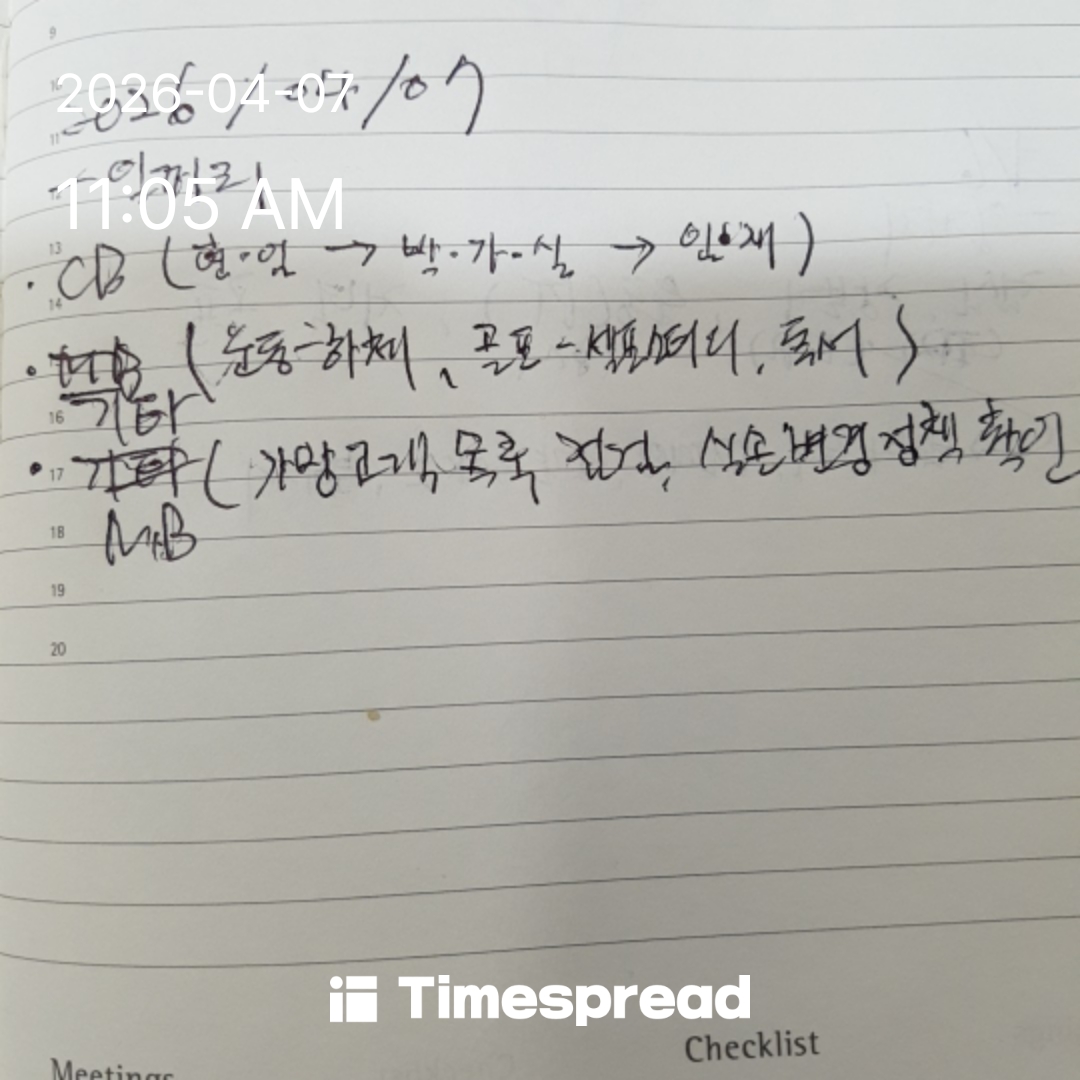 9
10
2026-04-07
2026 / 04 / 07
11
12
11:05 AM
13
· CB (현·임 → 박·가·실 → 인재)
14
· (운동-하체, 골프-셀프스터디, 독서)
16 기타
· 17 기타 (가망고객 목록 점검, 실손변경정책 확인
18 MB
19
20
Timespread
Checklist
Meetings